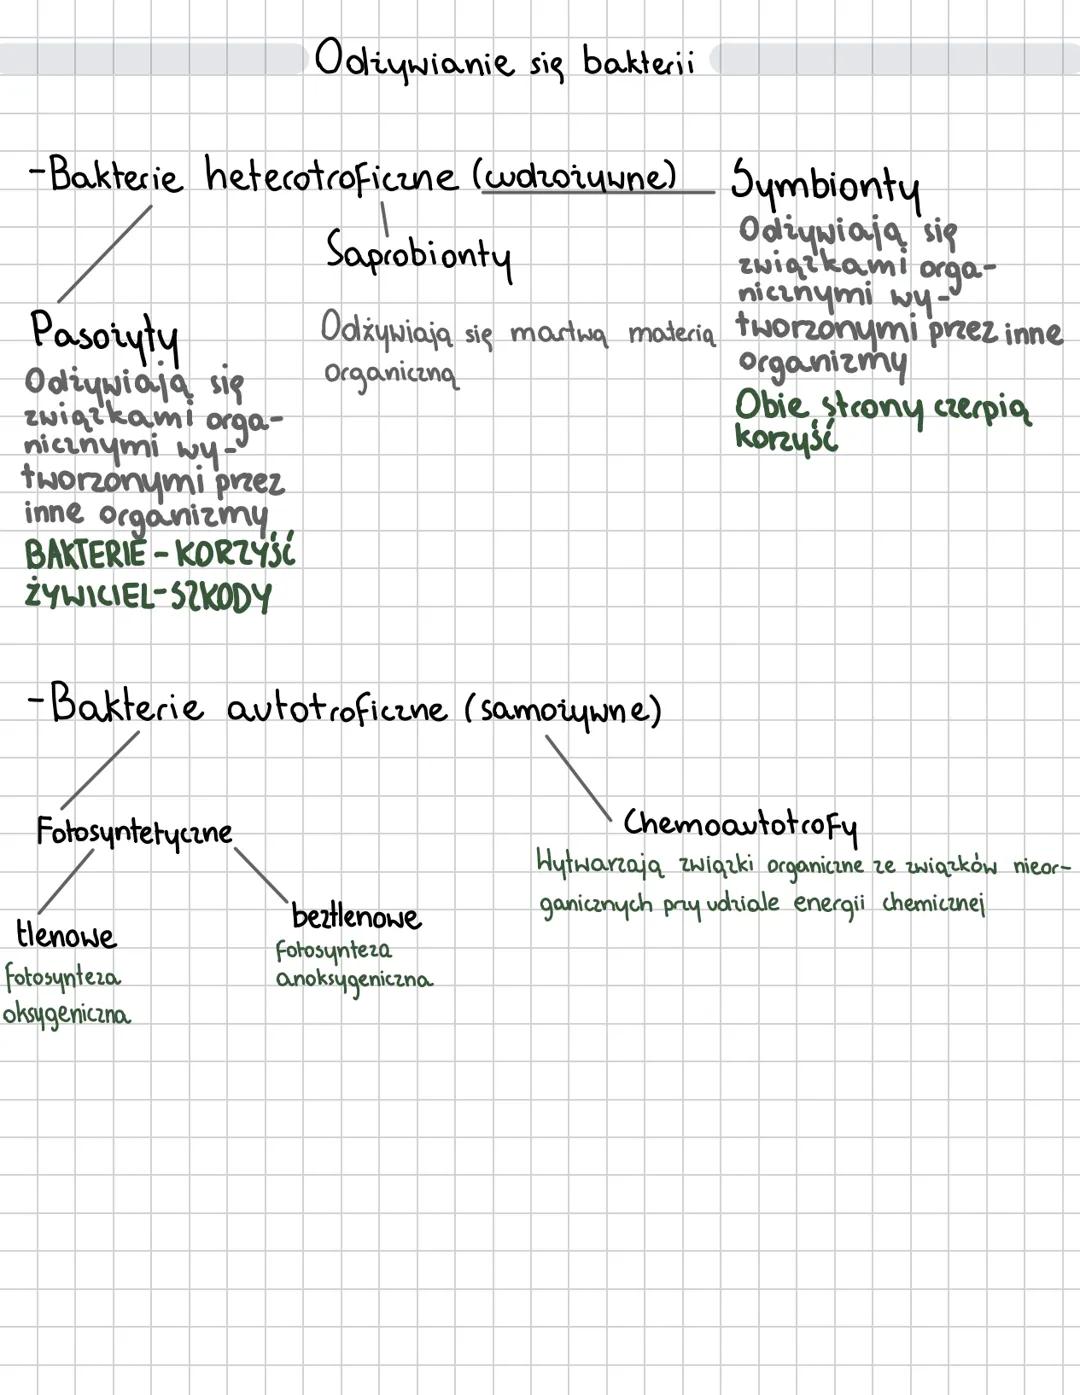 Odżywianie się bakterii
-Bakterie heterotroficzne (cudzożywne)
Pasożyty
Odżywiają się
związkami orga-
nicznymi wy-
tworzonymi przez
inne organizmy
BAKTERIE - KORZYŚĆ
ŻYWICIEL-SZKODY
Saprobionty
Odżywiają się martwą materią
organiczną
Symbionty
Odżywiają się
związkami orga-
nicznymi wy-
tworzonymi przez inne
organizmy
Obie strony czerpią
korzyść
-Bakterie autotroficzne (samożywne)
Fotosyntetyczne
tlenowe
fotosynteza
oksygeniczna
beztlenowe
fotosynteza
anoksygeniczna
Chemoautotrofy
Wytwarzają związki organiczne ze związków nieor-
ganicznych przy udziale energii chemicznej